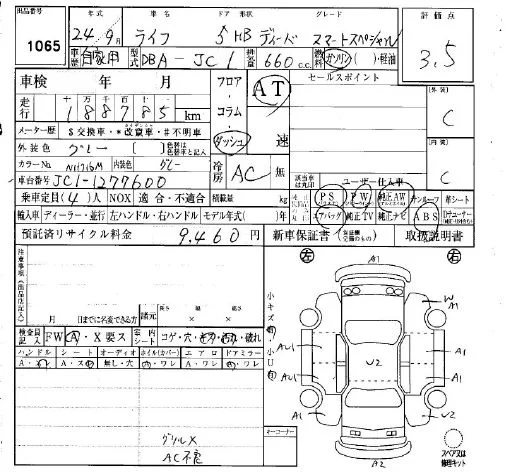 出品番号 年式 車名 ドア 形状 グレード 評価点
1065 24年9月 ライフ 5 HB ディーバ スマートスペシャル 3.5
車歴 自家用 型式 DBA-JC1 排気量 660 c.c. 燃料 ガソリン・( )・軽油
車検 年 月 フロア・コラム・ダッシュ AT 速 セールスポイント 外装 C
走行 十 万 千 百 十 km
188785
メーター歴 $交換車・*改竄車・#不明車 内装 C
外装色 グレー 色替は替色と記入
カラーNo 内装色 グレー 冷房 AC 無 ユーザー仕入車
車台番号 JC1-1277600 該当車は丸印
乗車定員(4)人 NOX 適合・不適合 積載量 kg PS PW 純正AW サンルーフ 革シート
輸入車 ディーラー・並行 左ハンドル・右ハンドル モデル年式( )年 エアバッグ 純正TV 純正ナビ ABS
預託済リサイクル料金 9,460円 新車保証書 取扱説明書
注意事項(商品店記入) 月 日までに名変できる方 諸元 長さ 幅 高さ × ×
検査員記入 FW A・X要ス 車内シート コゲ・穴・・・破れ
ハンドル シート オーディオ ホイル(カバー) エアロ ドアミラー
A・ A・ス 無し・穴 ・ワレ A・ワレ ・ワレ
グリルX
AC不良
小キズ 小U
コーナー
左 右
A1
W
A1
AU1 A1
U2
AU1 A1
A1 U2
A2
スペアタイヤ
修理キット